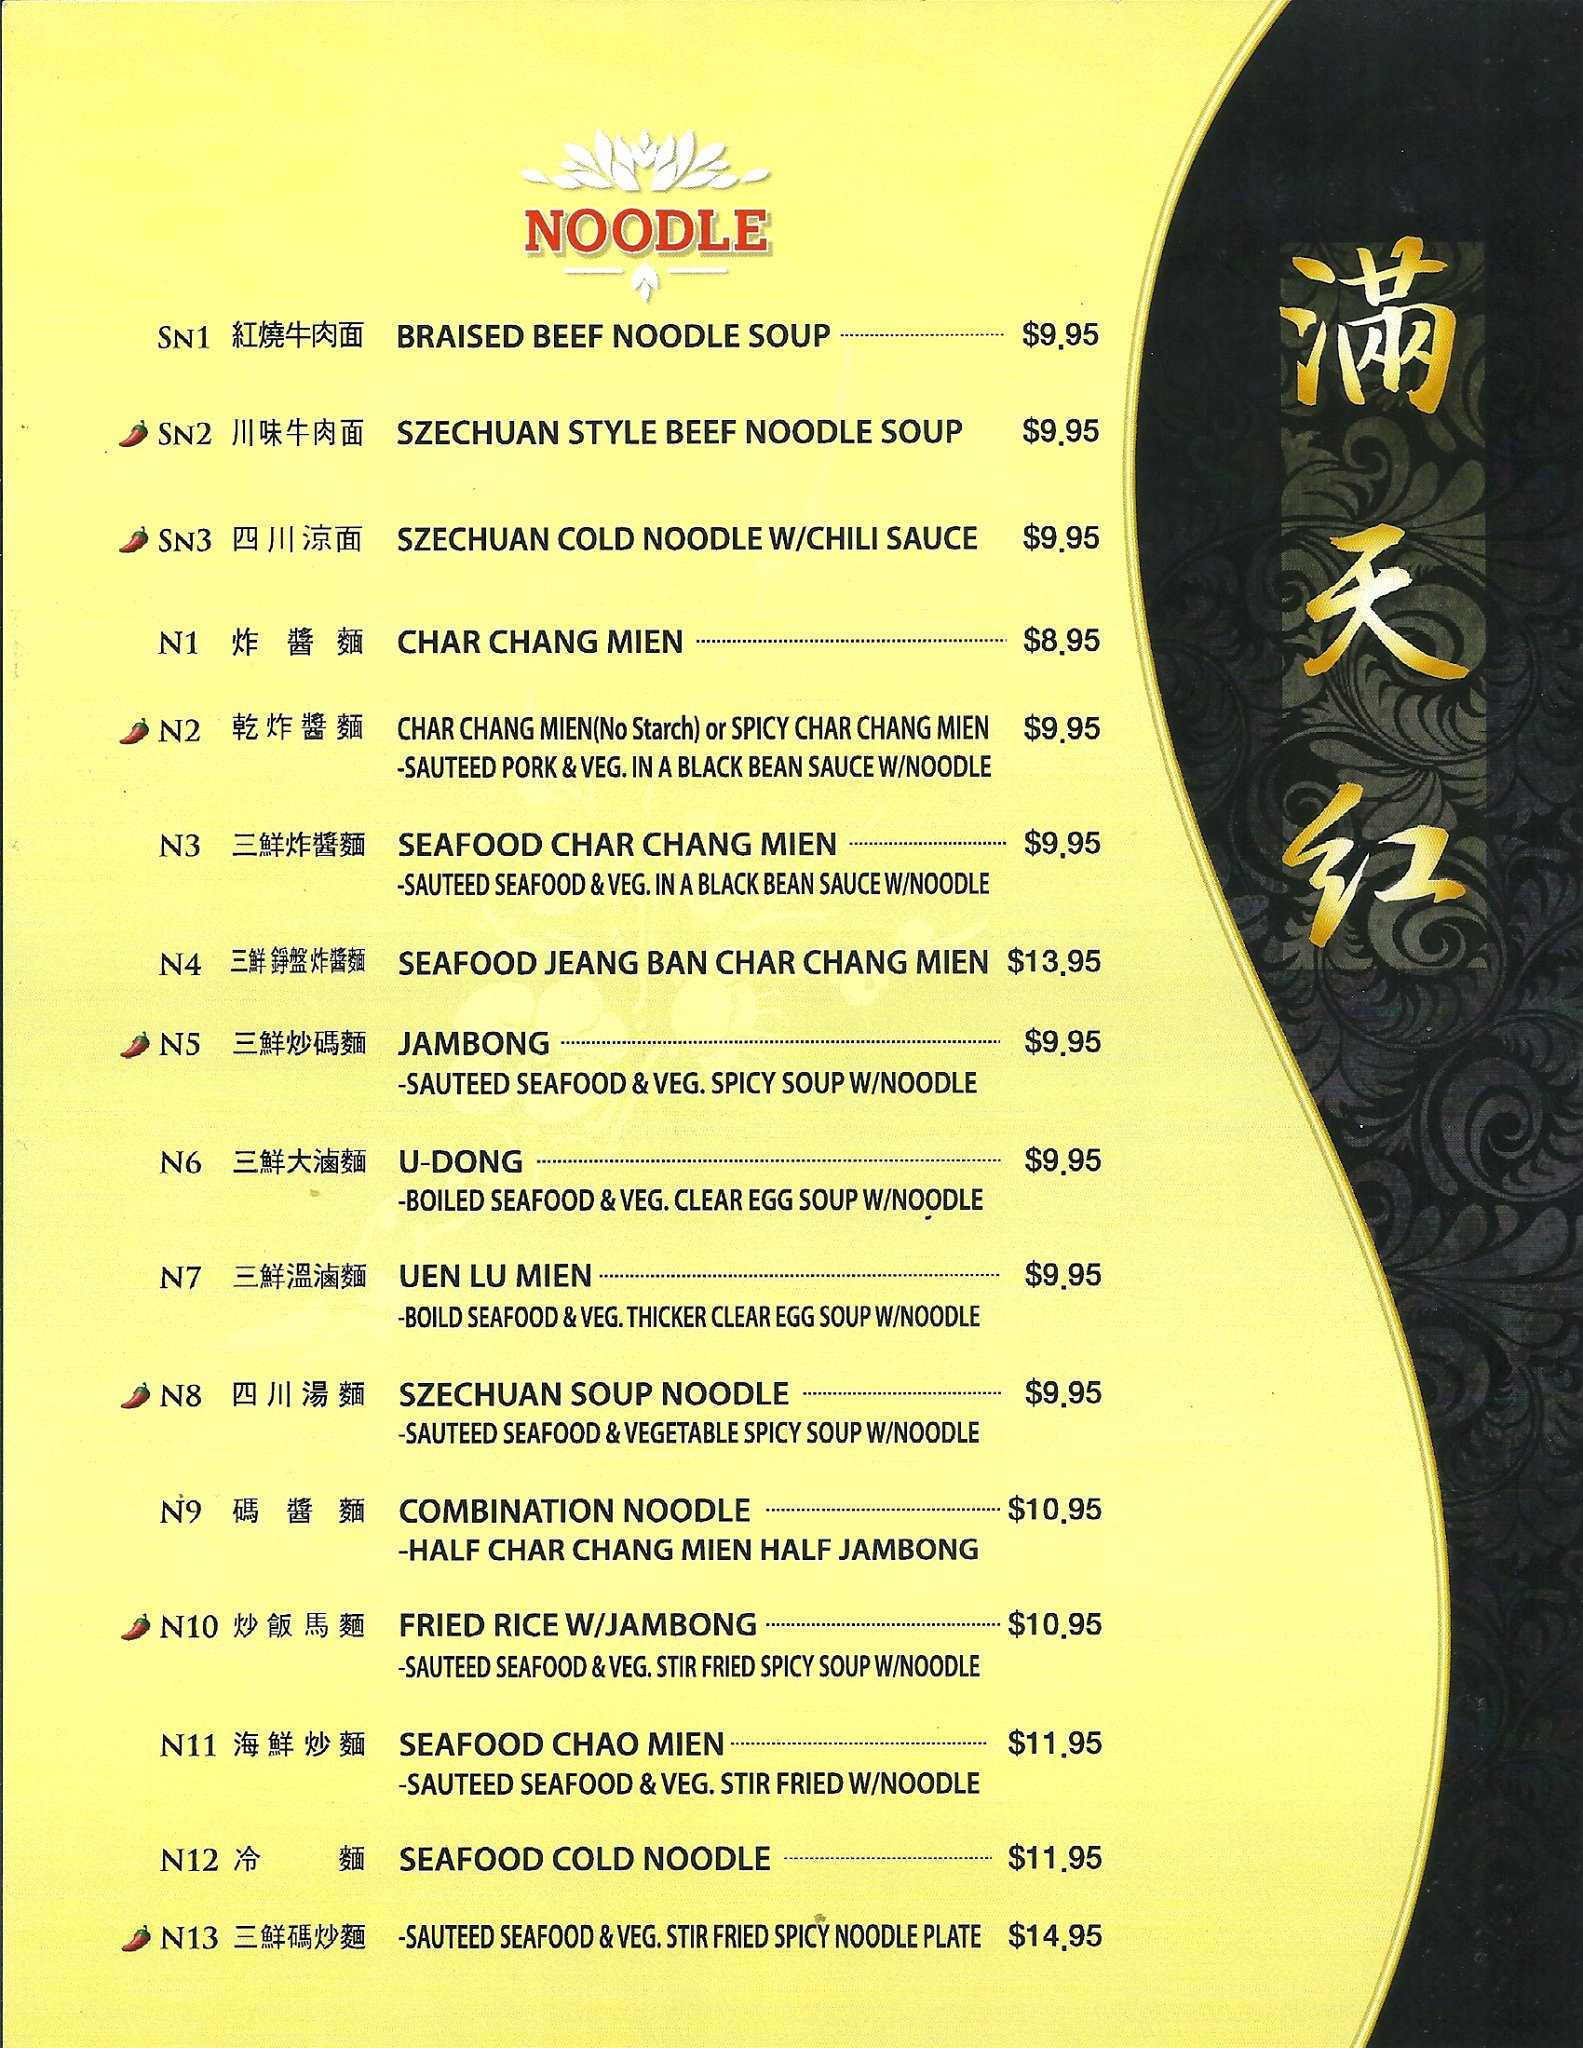 NOODLE
SN1 紅燒牛肉面 BRAISED BEEF NOODLE SOUP $9.95
SN2 川味牛肉面 SZECHUAN STYLE BEEF NOODLE SOUP $9.95
SN3 四川涼面 SZECHUAN COLD NOODLE W/CHILI SAUCE $9.95
N1 炸醬麵 CHAR CHANG MIEN $8.95
N2 乾炸醬麵 CHAR CHANG MIEN(No Starch) or SPICY CHAR CHANG MIEN $9.95
-SAUTEED PORK & VEG. IN A BLACK BEAN SAUCE W/NOODLE
N3 三鮮炸醬麵 SEAFOOD CHAR CHANG MIEN $9.95
-SAUTEED SEAFOOD & VEG. IN A BLACK BEAN SAUCE W/NOODLE
N4 三鮮錚盤炸醬麵 SEAFOOD JEANG BAN CHAR CHANG MIEN $13.95
N5 三鮮炒碼麵 JAMBONG $9.95
-SAUTEED SEAFOOD & VEG. SPICY SOUP W/NOODLE
N6 三鮮大滷麵 U-DONG $9.95
-BOILED SEAFOOD & VEG. CLEAR EGG SOUP W/NOODLE
N7 三鮮溫滷麵 UEN LU MIEN $9.95
-BOILD SEAFOOD & VEG. THICKER CLEAR EGG SOUP W/NOODLE
N8 四川湯麵 SZECHUAN SOUP NOODLE $9.95
-SAUTEED SEAFOOD & VEGETABLE SPICY SOUP W/NOODLE
N9 碼醬麵 COMBINATION NOODLE $10.95
-HALF CHAR CHANG MIEN HALF JAMBONG
N10 炒飯馬麵 FRIED RICE W/JAMBONG $10.95
-SAUTEED SEAFOOD & VEG. STIR FRIED SPICY SOUP W/NOODLE
N11 海鮮炒麵 SEAFOOD CHAO MIEN $11.95
-SAUTEED SEAFOOD & VEG. STIR FRIED W/NOODLE
N12 冷麵 SEAFOOD COLD NOODLE $11.95
N13 三鮮碼炒麵 -SAUTEED SEAFOOD & VEG. STIR FRIED SPICY NOODLE PLATE $14.95
滿天红